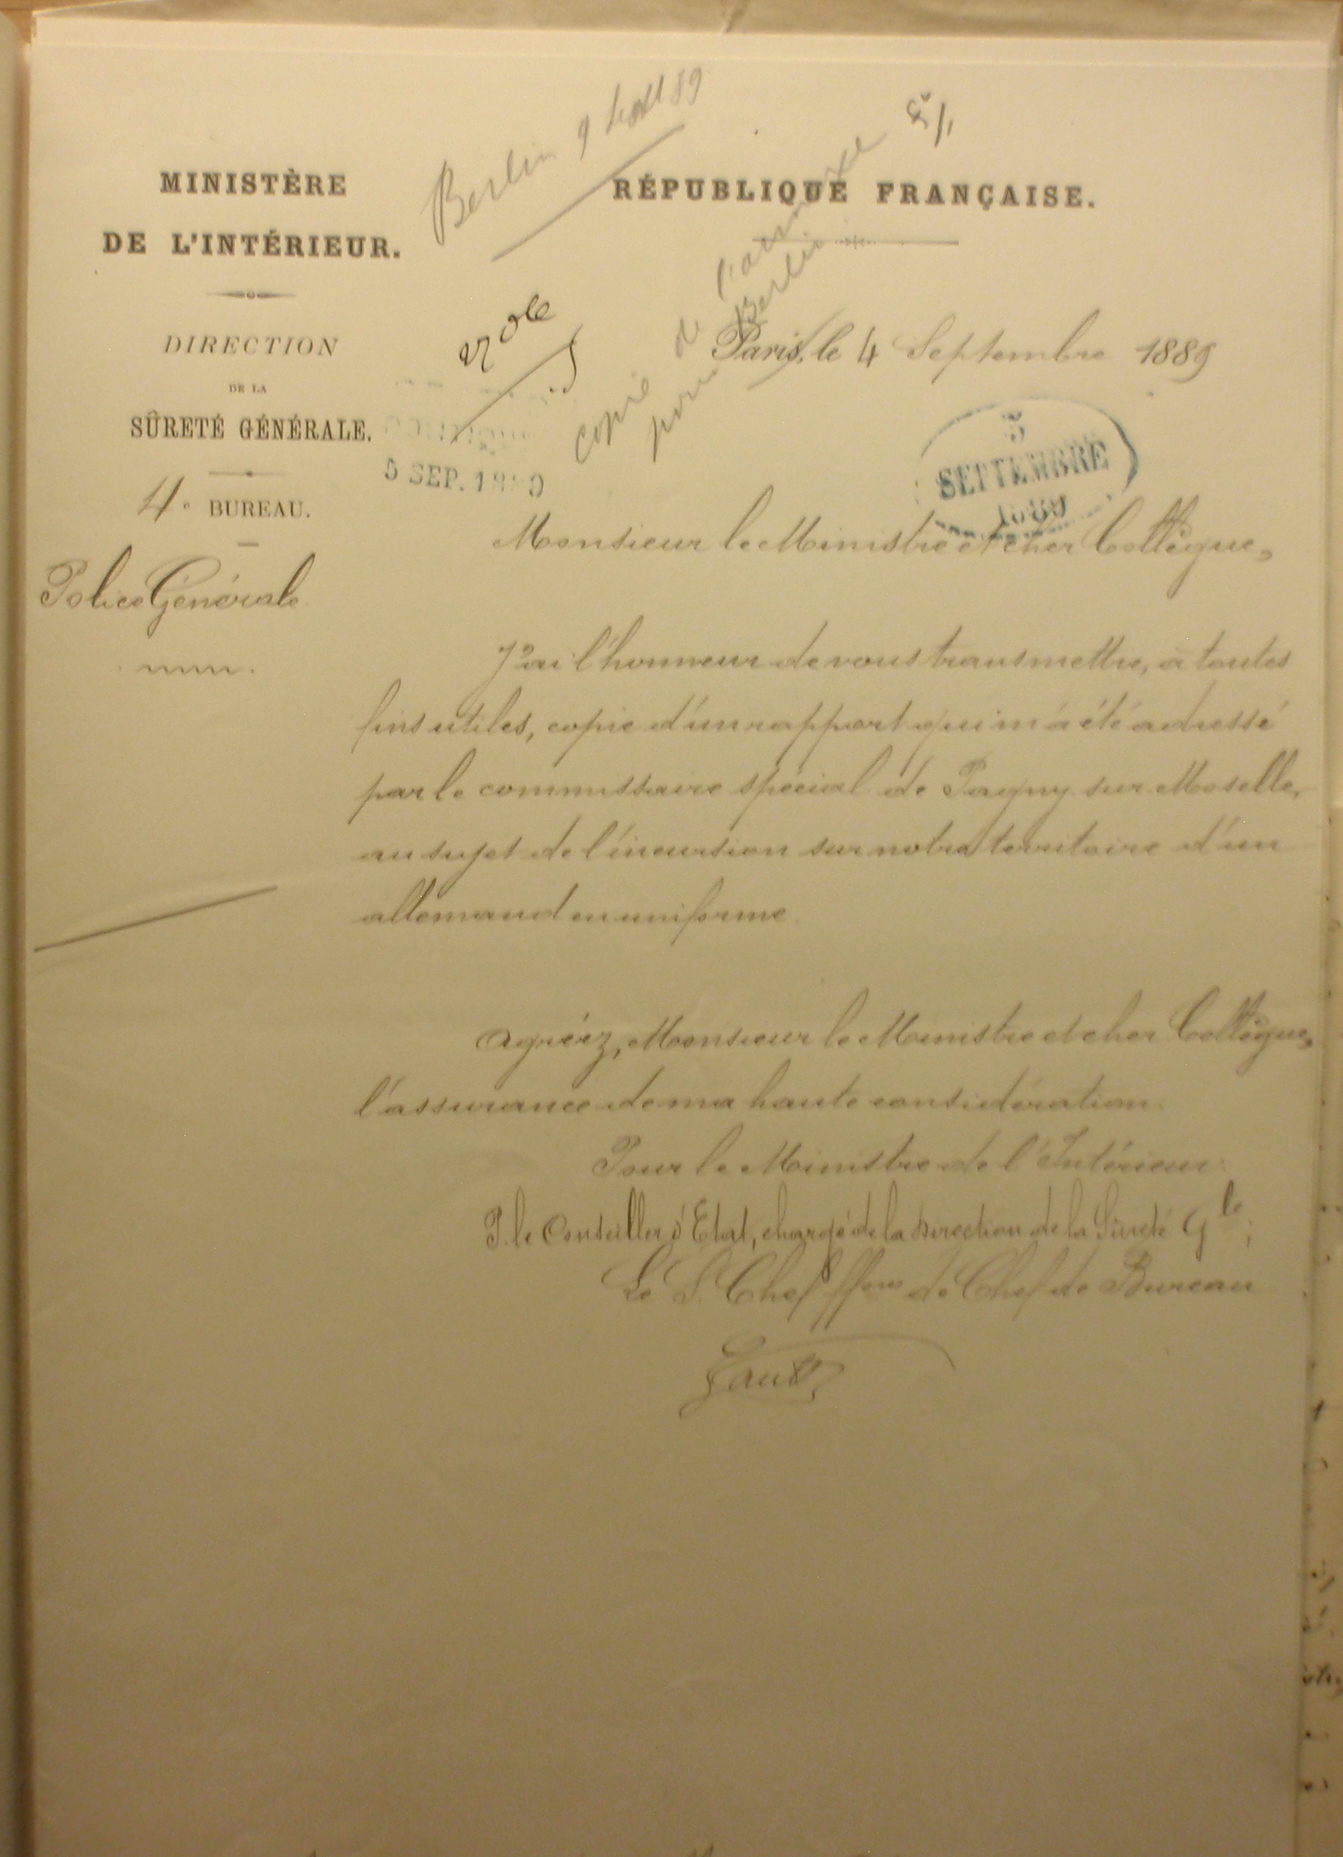 Berlin 9
RÉPUBLIQUE FRANÇAISE.
MINISTÈRE
DE L'INTÉRIEUR.
DIRECTION
DE LA
SÛRETÉ GÉNÉRALE.
4e BUREAU.
Police Générale.
copie de l'annexe
pour Berlin
Paris, le 4 Septembre 1889
5 SEP. 1889
5
SEPTEMBRE
1889
Monsieur le Ministre et cher Collègue,
J'ai l'honneur de vous transmettre, à toutes
fins utiles, copie d'un rapport qui m'a été adressé
par le commissaire spécial de Pagny sur Moselle,
au sujet de l'incursion sur notre territoire d'un
allemand en uniforme.
Agréez, Monsieur le Ministre et cher Collègue,
l'assurance de ma haute considération.
Pour le Ministre de l'Intérieur:
P. le Conseiller d'Etat, chargé de la Direction de la Sûreté Gle;
Le S. Chef ffons de Chef de Bureau